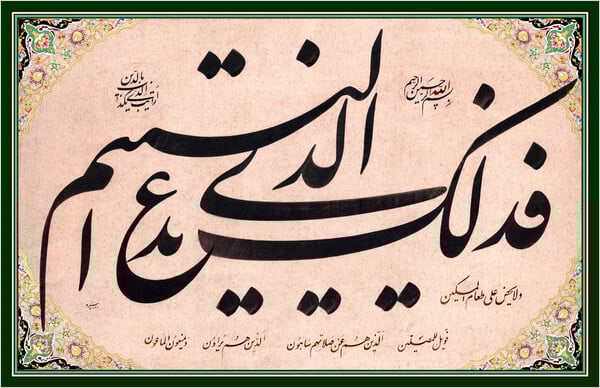 بسم الله الرحمن الرحیم
أرأیت الذی یکذب بالدین
فذلک الذی یدع الیتیم
ولا یحض علی طعام المسکین
فویل للمصلین الذین هم عن صلاتهم ساهون الذین هم یراؤن و یمنعون الماعون